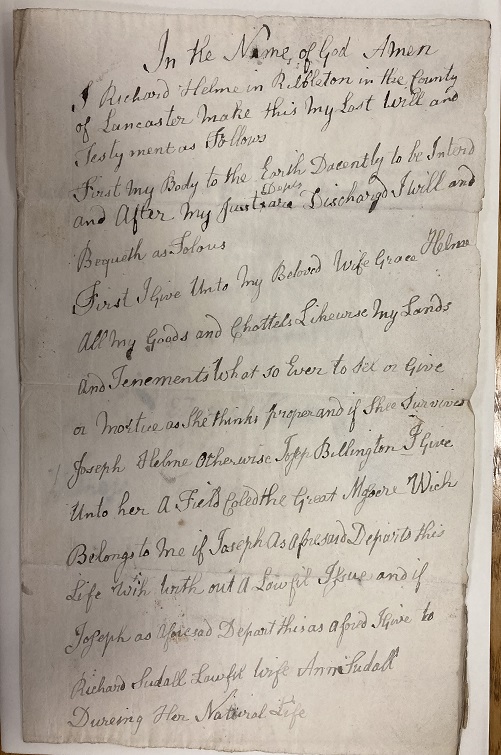 In the Name of God Amen
I Richard Helme in Ribbleton in the County
of Lancaster Make this My Last Will and
Testyment as Follows
First My Body to the Earth Dacently to be Interd
and After My Just Depts are Discharged I will and
Bequeth as Folous
First I Give Unto My Beloved Wife Grace Helme
All My Goods and Chattels Likewise My Lands
And Tenements What so Ever to Sel or Give
or Mortice as She thinks proper and if Shee Survives
Joseph Helme Otherwise Billington I Give
Unto her A Field Coled the Great Wich
Belongs to Me if Joseph As aforesaid Departs this
Life With out A Lawfil Issue and if
Joseph as aforesad Depart this as afored I Give to
Richard Sudall Lawfil Wife Ann Sudall
Dureing Her Natural Life